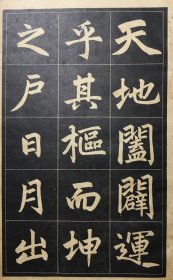 天地闔闢運
乎其樞而坤
之戶日月出